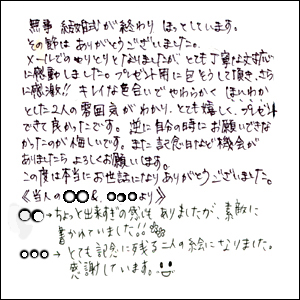 無事 結婚式が終わり ほっとしています。
その節は ありがとうございました。
メールでのやりとりとなりましたが、とても丁寧な対応
に感動しました。プレゼント用に包そうして頂き、さら
に感激!! キレイな色合いでやわらかく ほんわか
とした2人の雰囲気がわかり、とても嬉しく、プレゼント
できて良かったです。逆に自分の時にお願いできな
かったのが悔しいです。また記念日など機会が
ありましたら よろしくお願いします。
この度は本当にお世話になり ありがとうございました。
《当人の●●&、●●●より》
●●→ちょっと出来すぎの感も ありましたが、素敵に
書かれていました!!
●●●→とても記念に残る二人の絵になりました。
感謝しています。